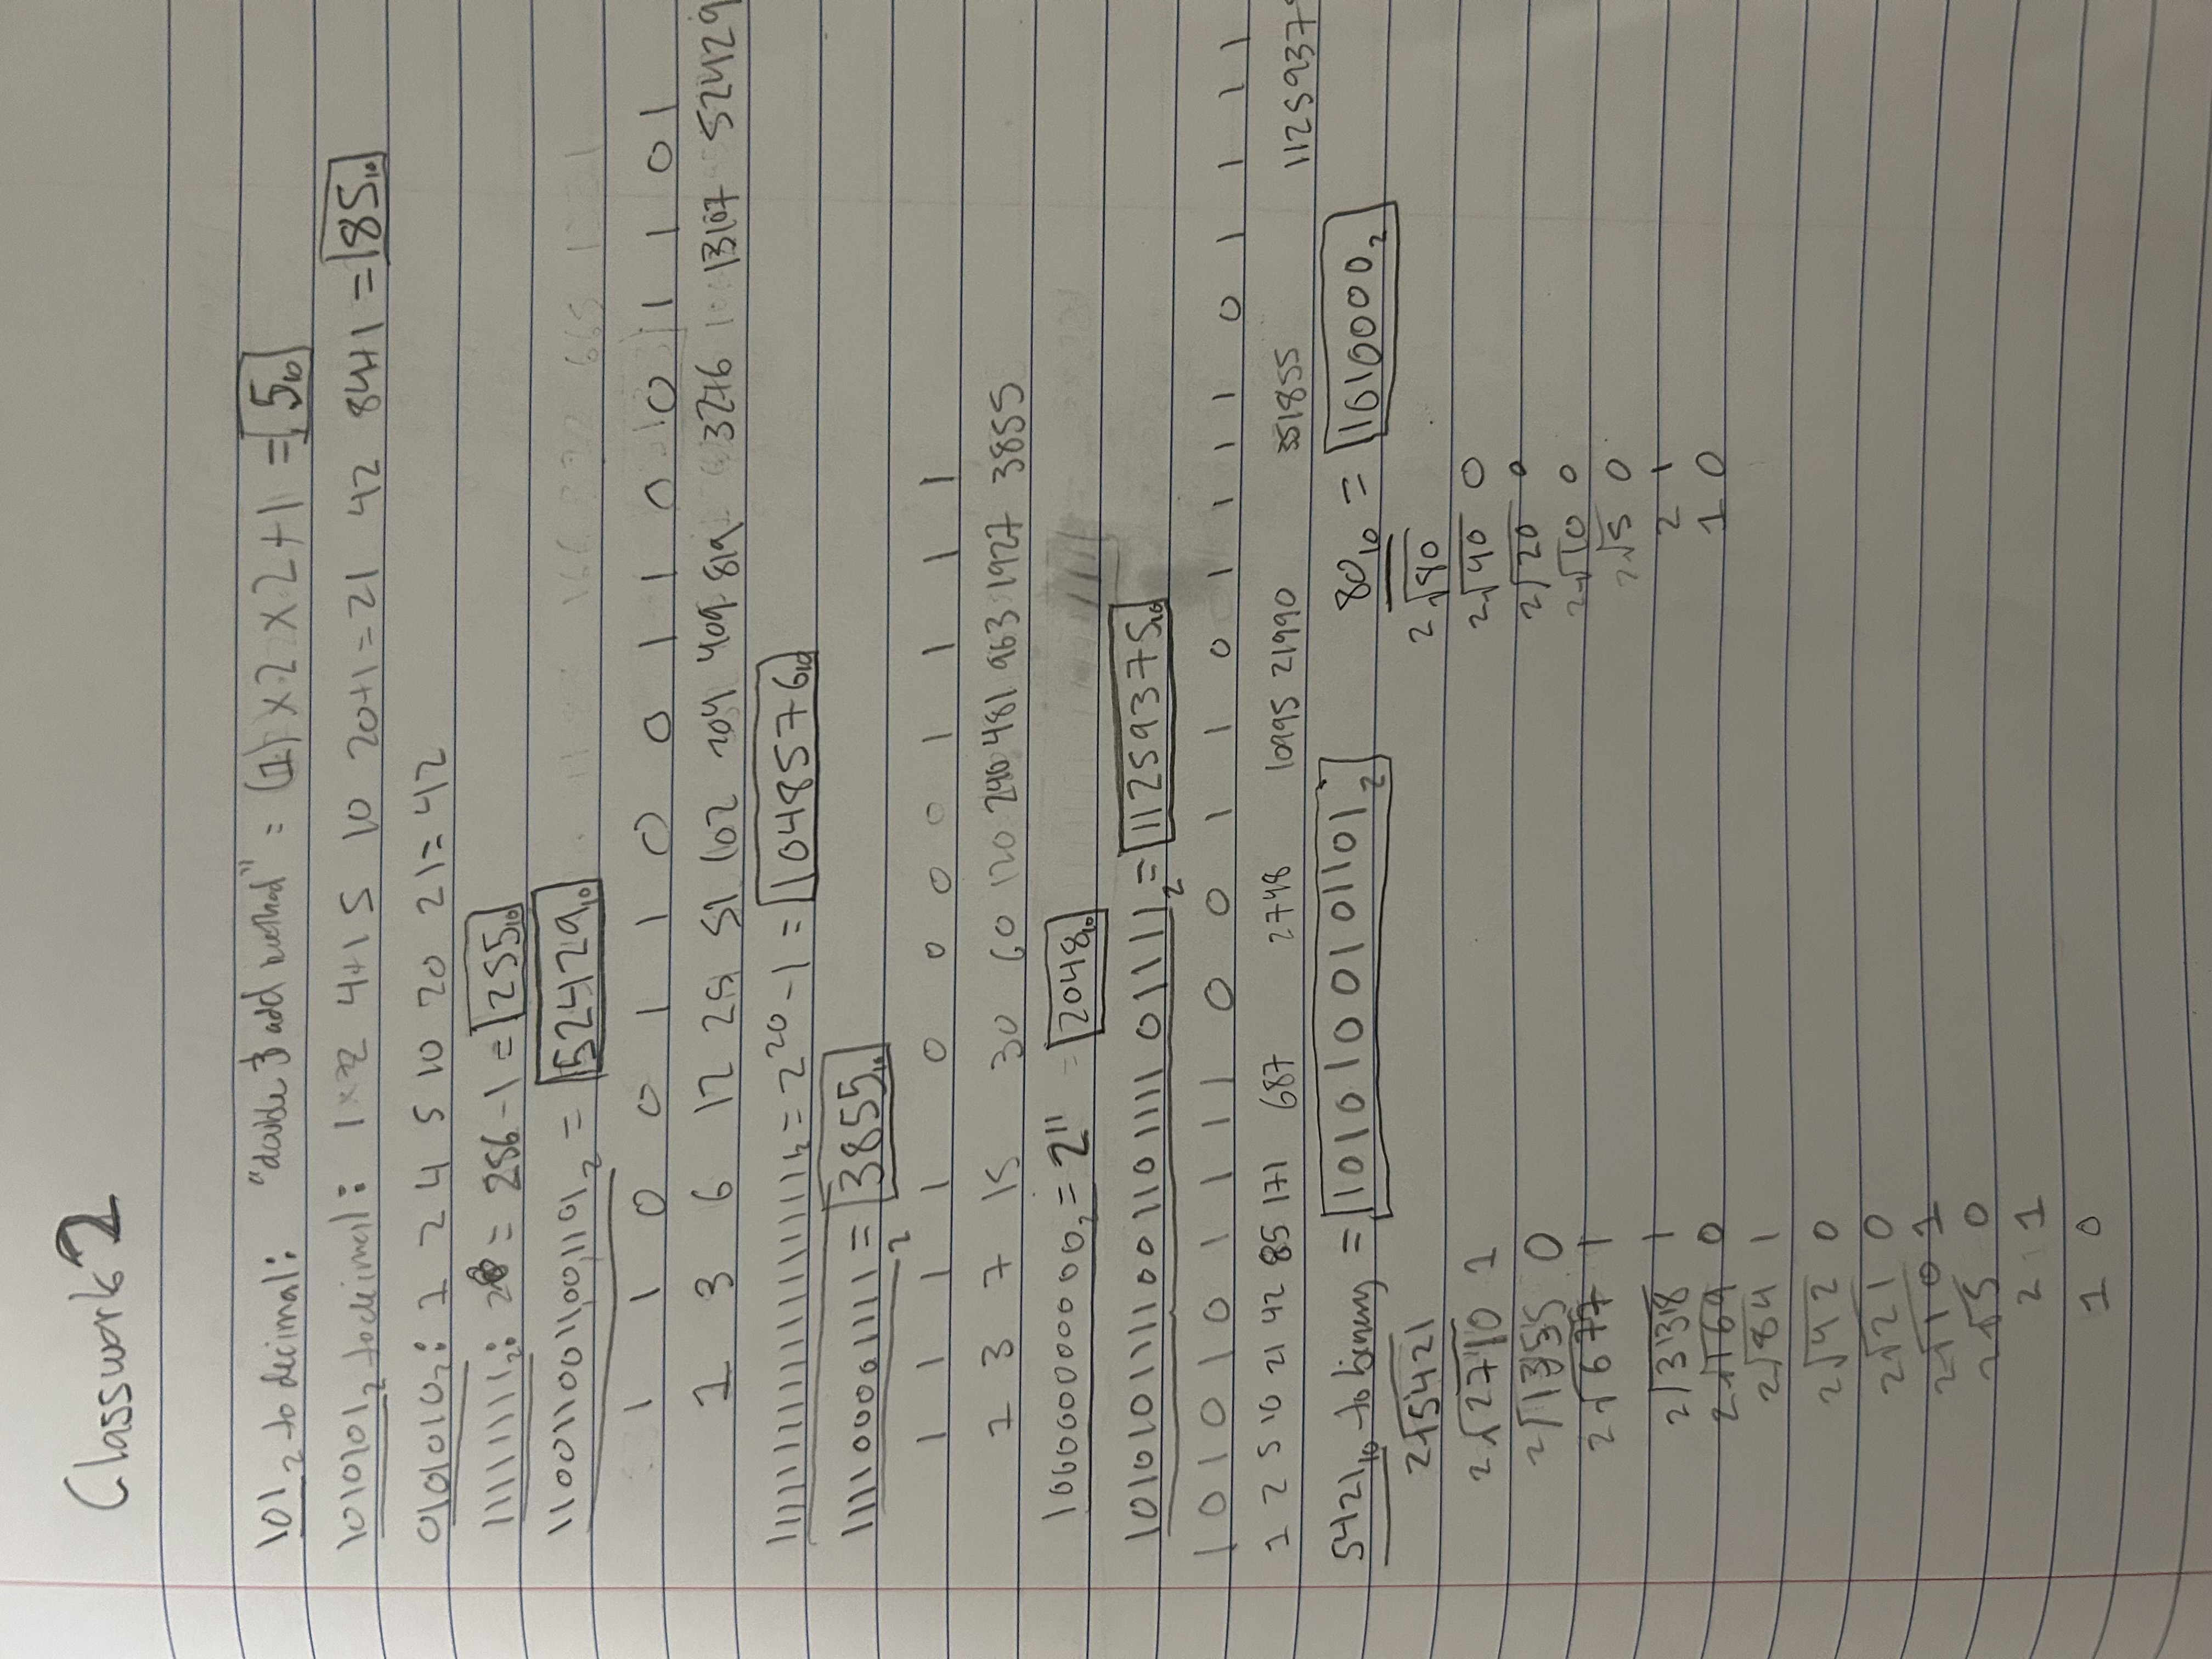 Classwork 2
101₂ to decimal: "double & add method" = (1) × 2 × 2 + 1 = 5₁₀
1010101₂ to decimal: 1 × 2 4+1 5 10 20+1 = 21 42 84+1 = 85₁₀
0101010₂: 1 2 4 5 10 20 21 = 42
11111111₂: 2⁸ = 256 - 1 = 255₁₀
1100110011001101₂ = 52429₁₀
1 1 0 0 1 1 0 0 1 1 0 0 1 1 0 1
1 3 6 12 25 51 102 204 409 819 3276 13107 52429
11111111111111111111₂ = 2²⁰ - 1 = 1048576₁₀
111100001111₂ = 3855₁₀
1 1 1 1 0 0 0 0 1 1 1 1
1 3 7 15 30 60 120 240 481 963 1927 3855
100000000000₂ = 2¹¹ = 2048₁₀
101010111100110111101111₂ = 11259375₁₀
1 0 1 0 1 0 1 1 1 1 0 0 1 1 0 1 1 1 1 0 1 1 1 1
1 2 5 10 21 42 85 171 687 2748 10995 21990 351855 11259375
5421₁₀ to binary = 1010100101101₂ 80₁₀ = 1010000₂
2√5421
2√2710 1
2√1355 0
2√677 1
2√338 1
2√169 0
2√84 1
2√42 0
2√21 0
2√10 1
2√5 0
2 1
1 0
2√80
2√40 0
2√20 0
2√10 0
2√5 0
2 1
1 0